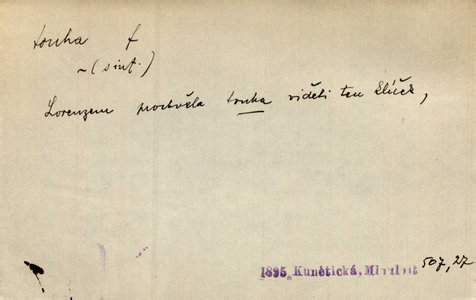 touha f
~ (s inf.)
Lorenzem prochvěla touha viděti ten klíček,
1895 Kunětická, 507,27